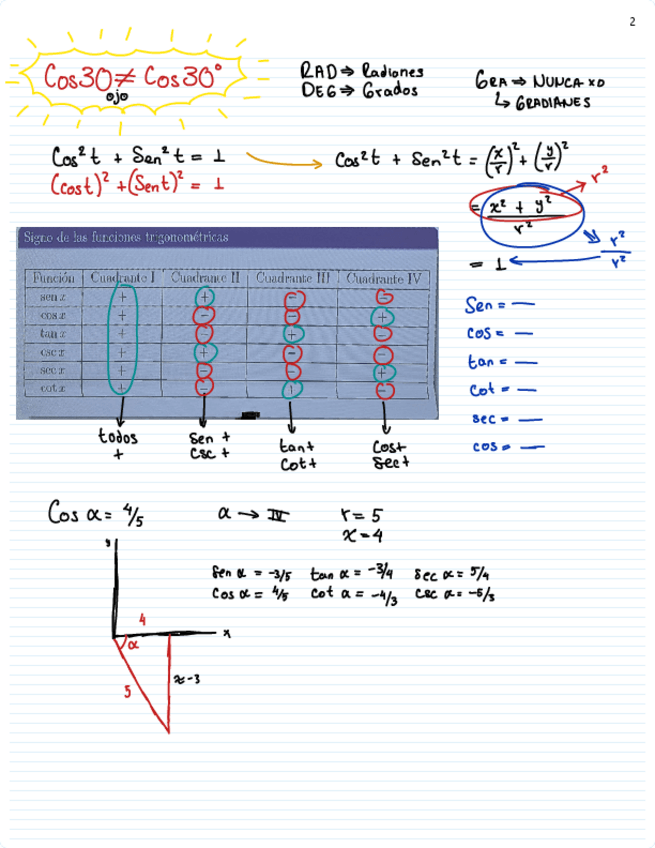 2
Cos30 ≠ Cos30°
ojo
RAD ⇒ Radiones
DEG ⇒ Grados
GRA ⇒ NUNCA XD
↳ GRADIANES
Cos² t + Sen² t = 1
(cost)² + (Sent)² = 1
Cos²t + Sen²t = (x/r)² + (y/r)²
= x² + y² / r²
r²
r²/r²
= 1
Signo de las funciones trigonométricas
Función Cuadrante I Cuadrante II Cuadrante III Cuadrante IV
sen x + + − −
cos x + − − +
tan x + − + −
csc x + + − −
sec x + − − +
cot x + − + −
todos +
Sen + Csc +
tan+ Cot+
Cos+ Sec+
Sen = —
cos = —
tan = —
Cot = —
sec = —
cos = —
Cos α = 4/5
α → IV
r = 5
x = 4
Sen α = -3/5 tan α = -3/4 Sec α = 5/4
Cos α = 4/5 Cot α = -4/3 Csc α = -5/3
y
4
x
α
5
-3